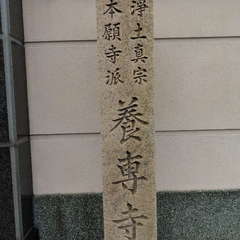 浄土真宗
本願寺派
養専寺